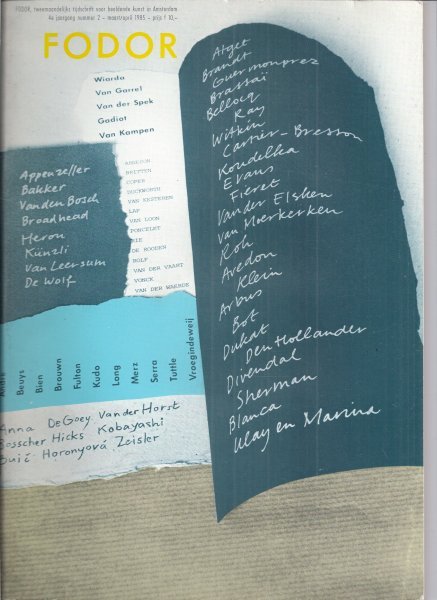 FODOR, tweemaandelijks tijdschrift voor beeldende kunst in Amsterdam
4e jaargang nummer 2 – maart/april 1985 – prijs f 10,–
FODOR
Wiarda
Van Garrel
Van der Spek
Gadiot
Van Kampen
Appenzeller
Bakker
Vanden Bosch
Broadhead
Heron
Künzli
Van Leersum
De Wolf
BRITTEN
COPER
DUCKWORTH
VAN KESTEREN
LAP
VAN LOON
PONCELET
RIE
DE ROODEN
ROLF
VAN DER VAART
VONCK
VAN DER WAERDE
Atget
Brandt
Guermonprez
Brassaï
Bellocq
Ray
Witkin
Cartier-Bresson
Koudelka
Evans
Fieret
Vander Elsken
van Moerkerken
Roh
Avedon
Klein
Arbus
Bot
Dukat
Den Hollander
Divendal
Sherman
Blanca
Ulay en Marina
Andre
Beuys
Bien
Brouwn
Fulton
Kudo
Long
Merz
Serra
Tuttle
Vroegindeweij
Anna DeGoey VanderHorst
Bosscher Hicks Kobayashi
Buić Horonyová Zeisler